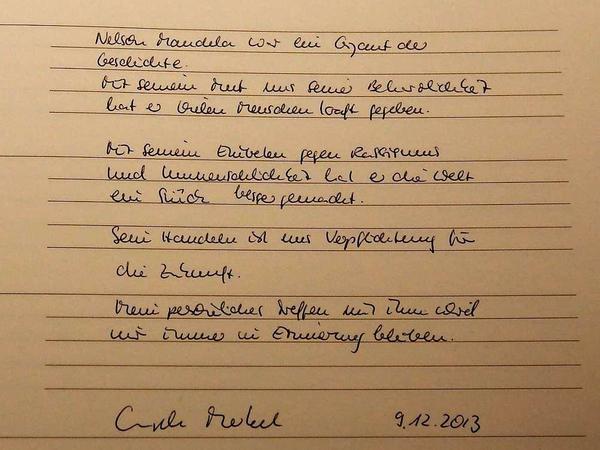 Nelson Mandela war ein Gigant der
Geschichte.
Mit seinem Mut und seiner Beharrlichkeit
hat er vielen Menschen Kraft gegeben.
Mit seinem Eintreten gegen Rassismus
und Unmenschlichkeit hat er die Welt
ein Stück besser gemacht.
Sein Handeln ist uns Verpflichtung für
die Zukunft.
Mein persönliches Treffen mit ihm wird
mir immer in Erinnerung bleiben.
Angela Merkel 9.12.2013